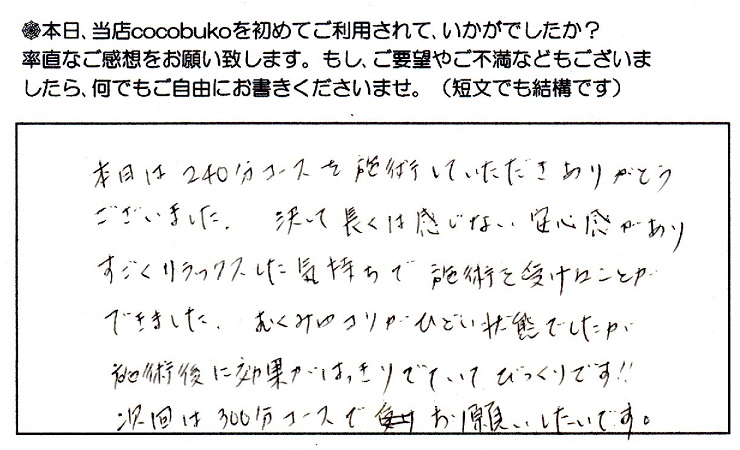 ◉本日、当店cocobukoを初めてご利用されて、いかがでしたか?
率直なご感想をお願い致します。もし、ご要望やご不満などもございま
したら、何でもご自由にお書きくださいませ。(短文でも結構です)
本日は240分コースを施術していただきありがとう
ございました。決して長くは感じない安心感があり
すごくリラックスした気持ちで施術を受けることが
できました。むくみやコリがひどい状態でしたが
施術後に効果がはっきりでていてびっくりです!!
次回は300分コースでお願いしたいです。